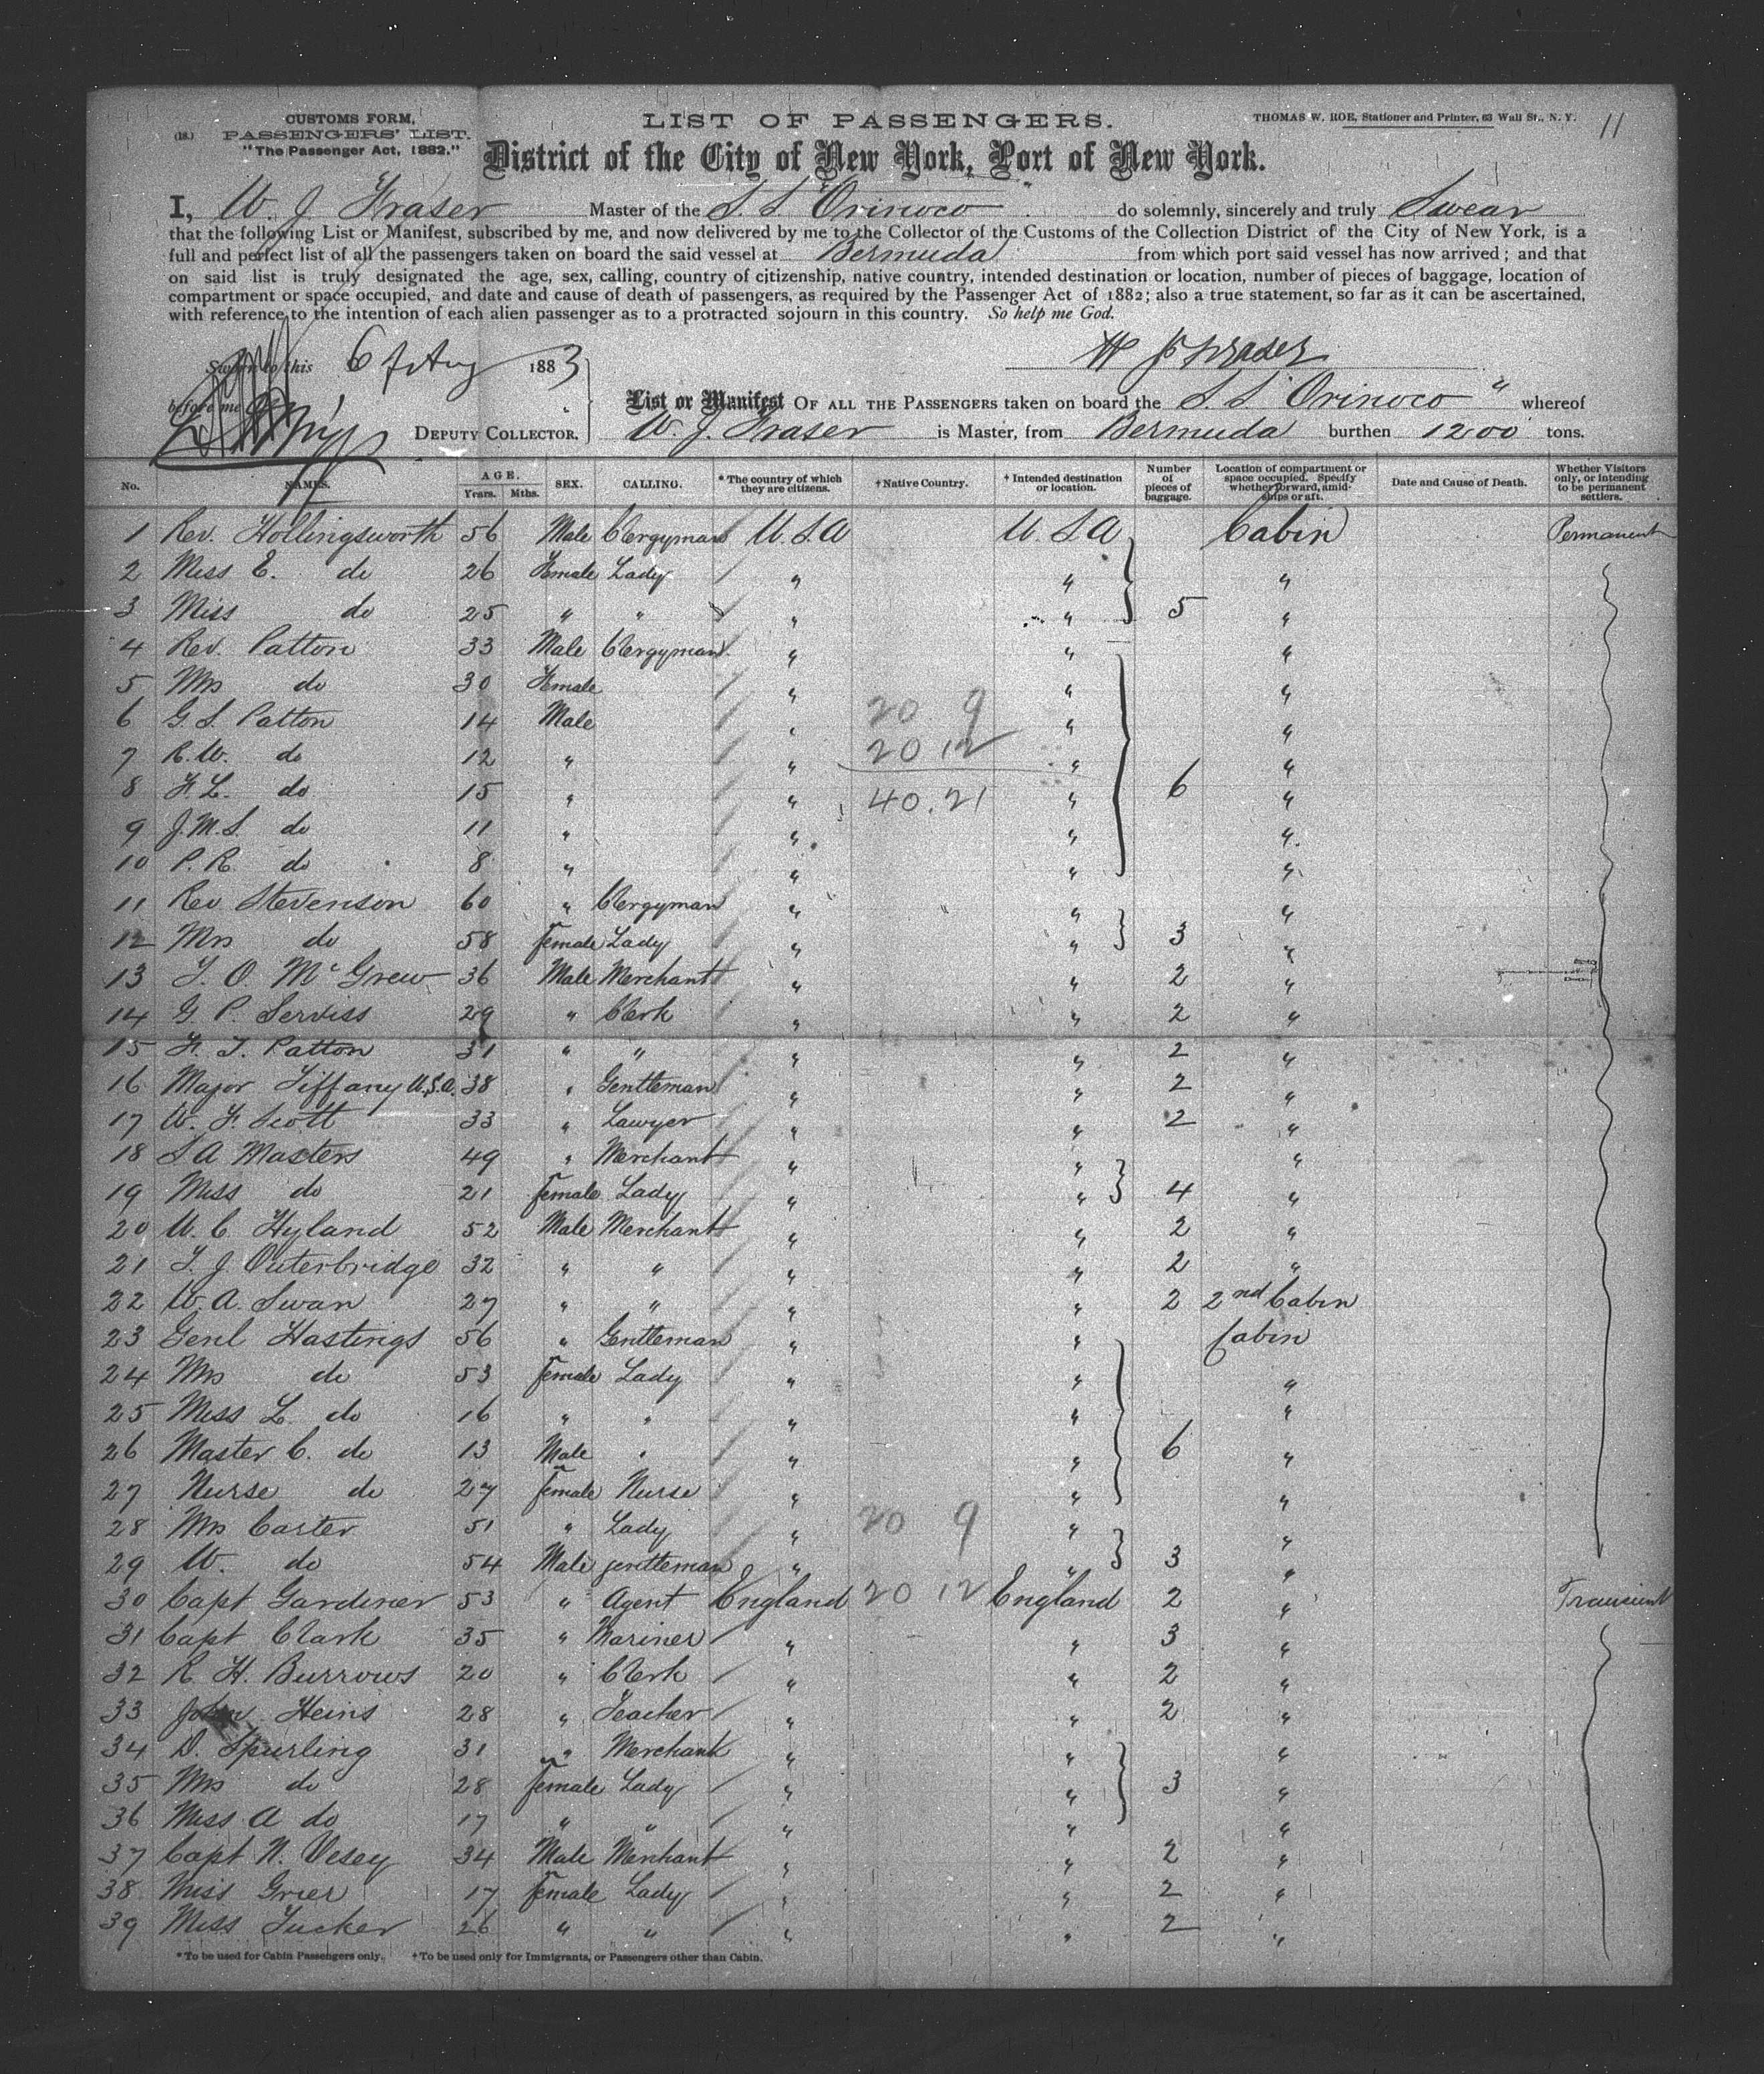 CUSTOMS FORM,
(18.) PASSENGERS' LIST.
"The Passenger Act, 1882."
LIST OF PASSENGERS.
THOMAS W. ROE, Stationer and Printer, 63 Wall St., N. Y.
11
District of the City of New York, Port of New York.
I, W. J. Fraser Master of the S. S. Orinoco do solemnly, sincerely and truly Swear
that the following List or Manifest, subscribed by me, and now delivered by me to the Collector of the Customs of the Collection District of the City of New York, is a
full and perfect list of all the passengers taken on board the said vessel at Bermuda from which port said vessel has now arrived; and that
on said list is truly designated the age, sex, calling, country of citizenship, native country, intended destination or location, number of pieces of baggage, location of
compartment or space occupied, and date and cause of death of passengers, as required by the Passenger Act of 1882; also a true statement, so far as it can be ascertained,
with reference to the intention of each alien passenger as to a protracted sojourn in this country. So help me God.
Sworn to this 6 of Aug 1883
W J Fraser
before me
List or Manifest OF ALL THE PASSENGERS taken on board the S. S. Orinoco " whereof
DEPUTY COLLECTOR, W. J. Fraser is Master, from Bermuda burthen 1200 tons.
No. NAMES. AGE. Years. Mths. SEX. CALLING. *The country of which they are citizens. †Native Country. †Intended destination or location. Number of pieces of baggage. Location of compartment or space occupied. Specify whether forward, amidships or aft. Date and Cause of Death. Whether Visitors only, or intending to be permanent settlers.
1 Rev. Hollingsworth 56 Male Clergyman U.S.A U.S.A Cabin Permanent
2 Miss E. do 26 Female Lady " " "
3 Miss do 25 " " " " 5 "
4 Rev. Patton 33 Male Clergyman " " "
5 Mrs do 30 Female " " "
6 G. S. Patton 14 Male " 20 9 " "
7 R. W. do 12 " " 20 12 " "
8 F. L. do 15 " " 40.21 " 6 "
9 J. M. S. do 11 " " " "
10 P. R. do 8 " " " "
11 Rev Stevenson 60 " Clergyman " " "
12 Mrs do 58 female Lady " " 3 "
13 T. O. McGrew 36 Male Merchant " " 2 "
14 G P. Serviss 29 " Clerk " " 2 "
15 F. T. Patton 31 " " " " 2 "
16 Major Tiffany U.S.A. 38 " Gentleman " " 2 "
17 W. F. Scott 33 " Lawyer " " 2 "
18 S A Masters 49 " Merchant " " "
19 Miss do 21 female Lady " " 4 "
20 W. C Hyland 52 Male Merchant " " 2 "
21 T. J. Outerbridge 32 " " " " 2 "
22 W. A. Swan 27 " " " " 2 2nd Cabin
23 Genl Hastings 56 " Gentleman " " Cabin
24 Mrs do 53 female Lady " " "
25 Miss L. do 16 " " " " "
26 Master C. do 13 Male " " " 6 "
27 Nurse do 27 female Nurse " " "
28 Mrs Carter 51 " Lady " 20 9 " "
29 W. do 54 Male gentleman " " 3 "
30 Capt Gardiner 53 " Agent England 20 12 England 2 " Transient
31 Capt Clark 35 " Mariner " " 3 "
32 R. H. Burrows 20 " Clerk " " 2 "
33 John Heins 28 " Teacher " " 2 "
34 D. Spurling 31 " Merchant " " "
35 Mrs do 28 female Lady " " 3 "
36 Miss A do 17 " " " " "
37 Capt N. Vesey 34 Male Merchant " " 2 "
38 Miss Grier 17 female Lady " " 2 "
39 Miss Tucker 26 " " " " 2 "
*To be used for Cabin Passengers only. †To be used only for Immigrants, or Passengers other than Cabin.